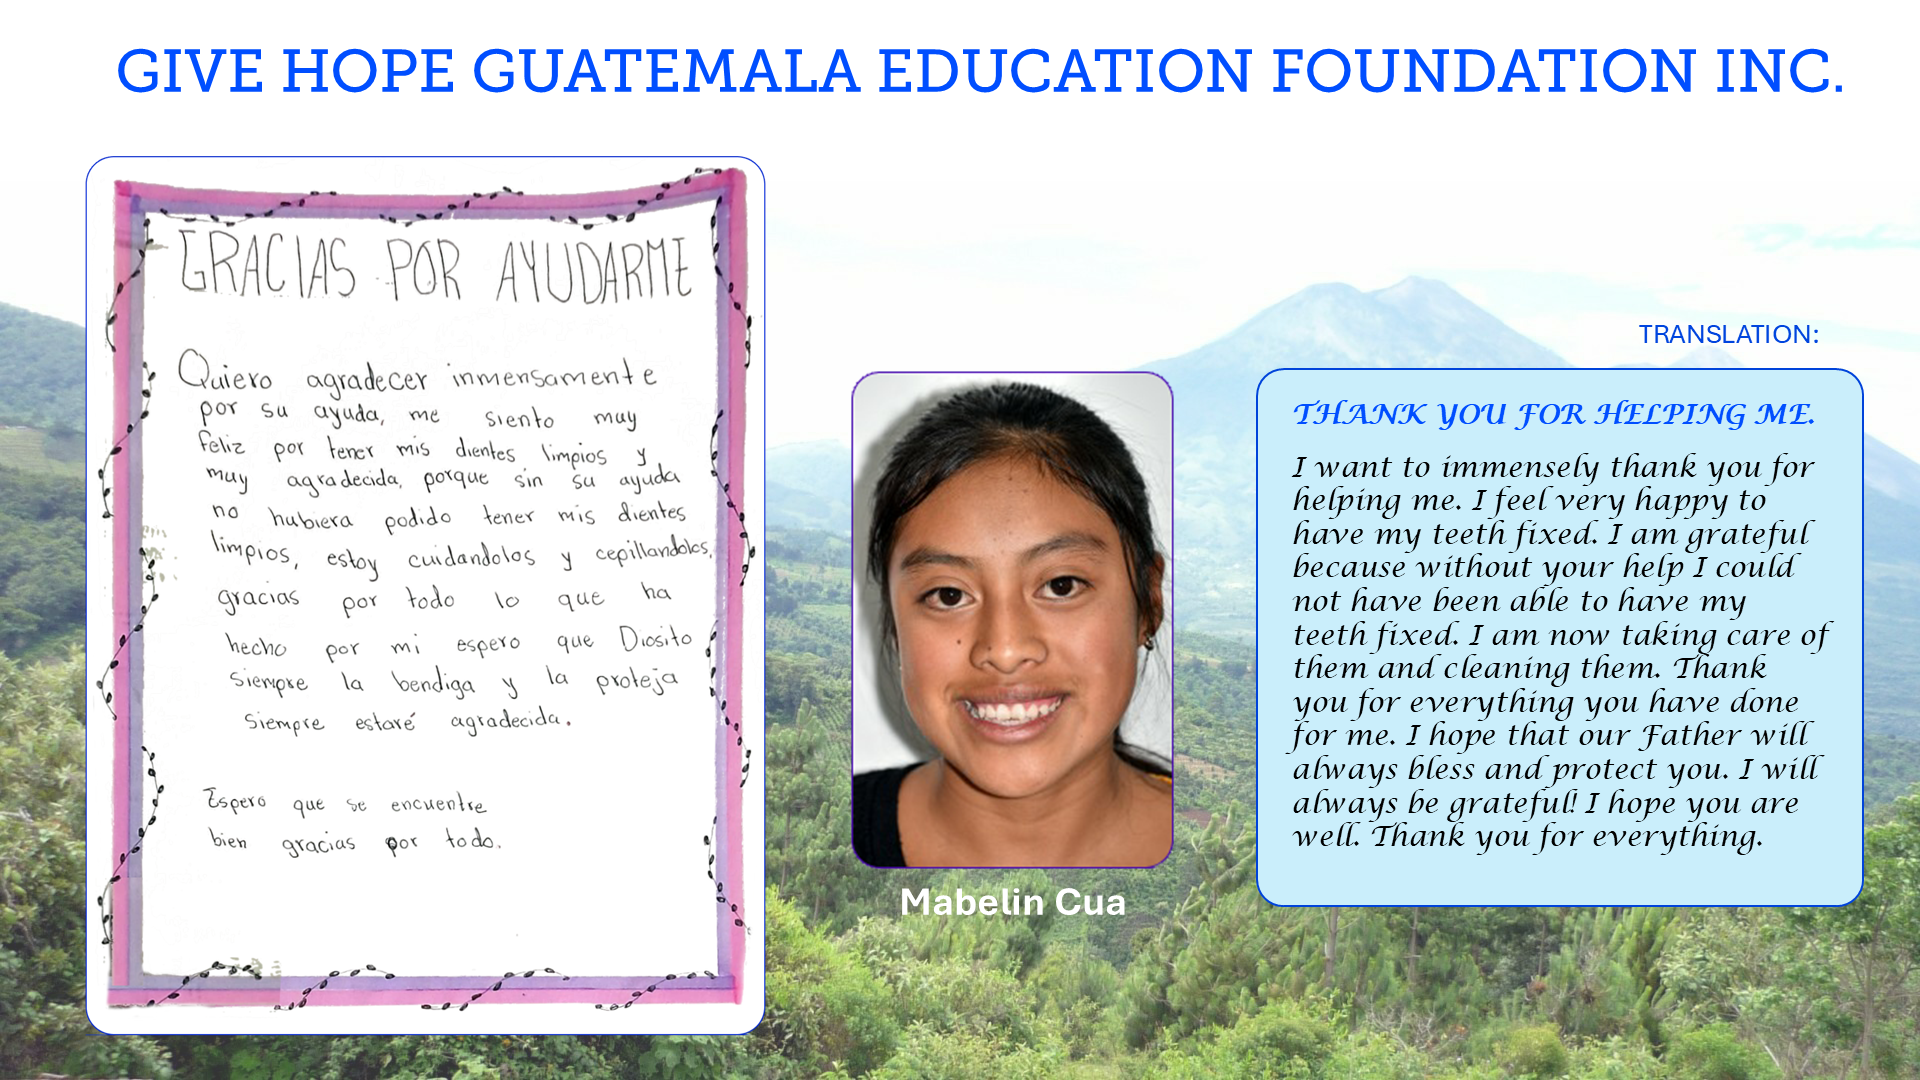 GIVE HOPE GUATEMALA EDUCATION FOUNDATION INC.
GRACIAS POR AYUDARME
Quiero agradecer inmensamente
por su ayuda, me siento muy
feliz por tener mis dientes limpios y
muy agradecida, porque sin su ayuda
no hubiera podido tener mis dientes
limpios, estoy cuidandolos y cepillandolos,
gracias por todo lo que ha
hecho por mi espero que Diosito
siempre la bendiga y la proteja
siempre estaré agradecida.
Espero que se encuentre
bien gracias por todo.
Mabelin Cua
TRANSLATION:
THANK YOU FOR HELPING ME.
I want to immensely thank you for
helping me. I feel very happy to
have my teeth fixed. I am grateful
because without your help I could
not have been able to have my
teeth fixed. I am now taking care of
them and cleaning them. Thank
you for everything you have done
for me. I hope that our Father will
always bless and protect you. I will
always be grateful! I hope you are
well. Thank you for everything.